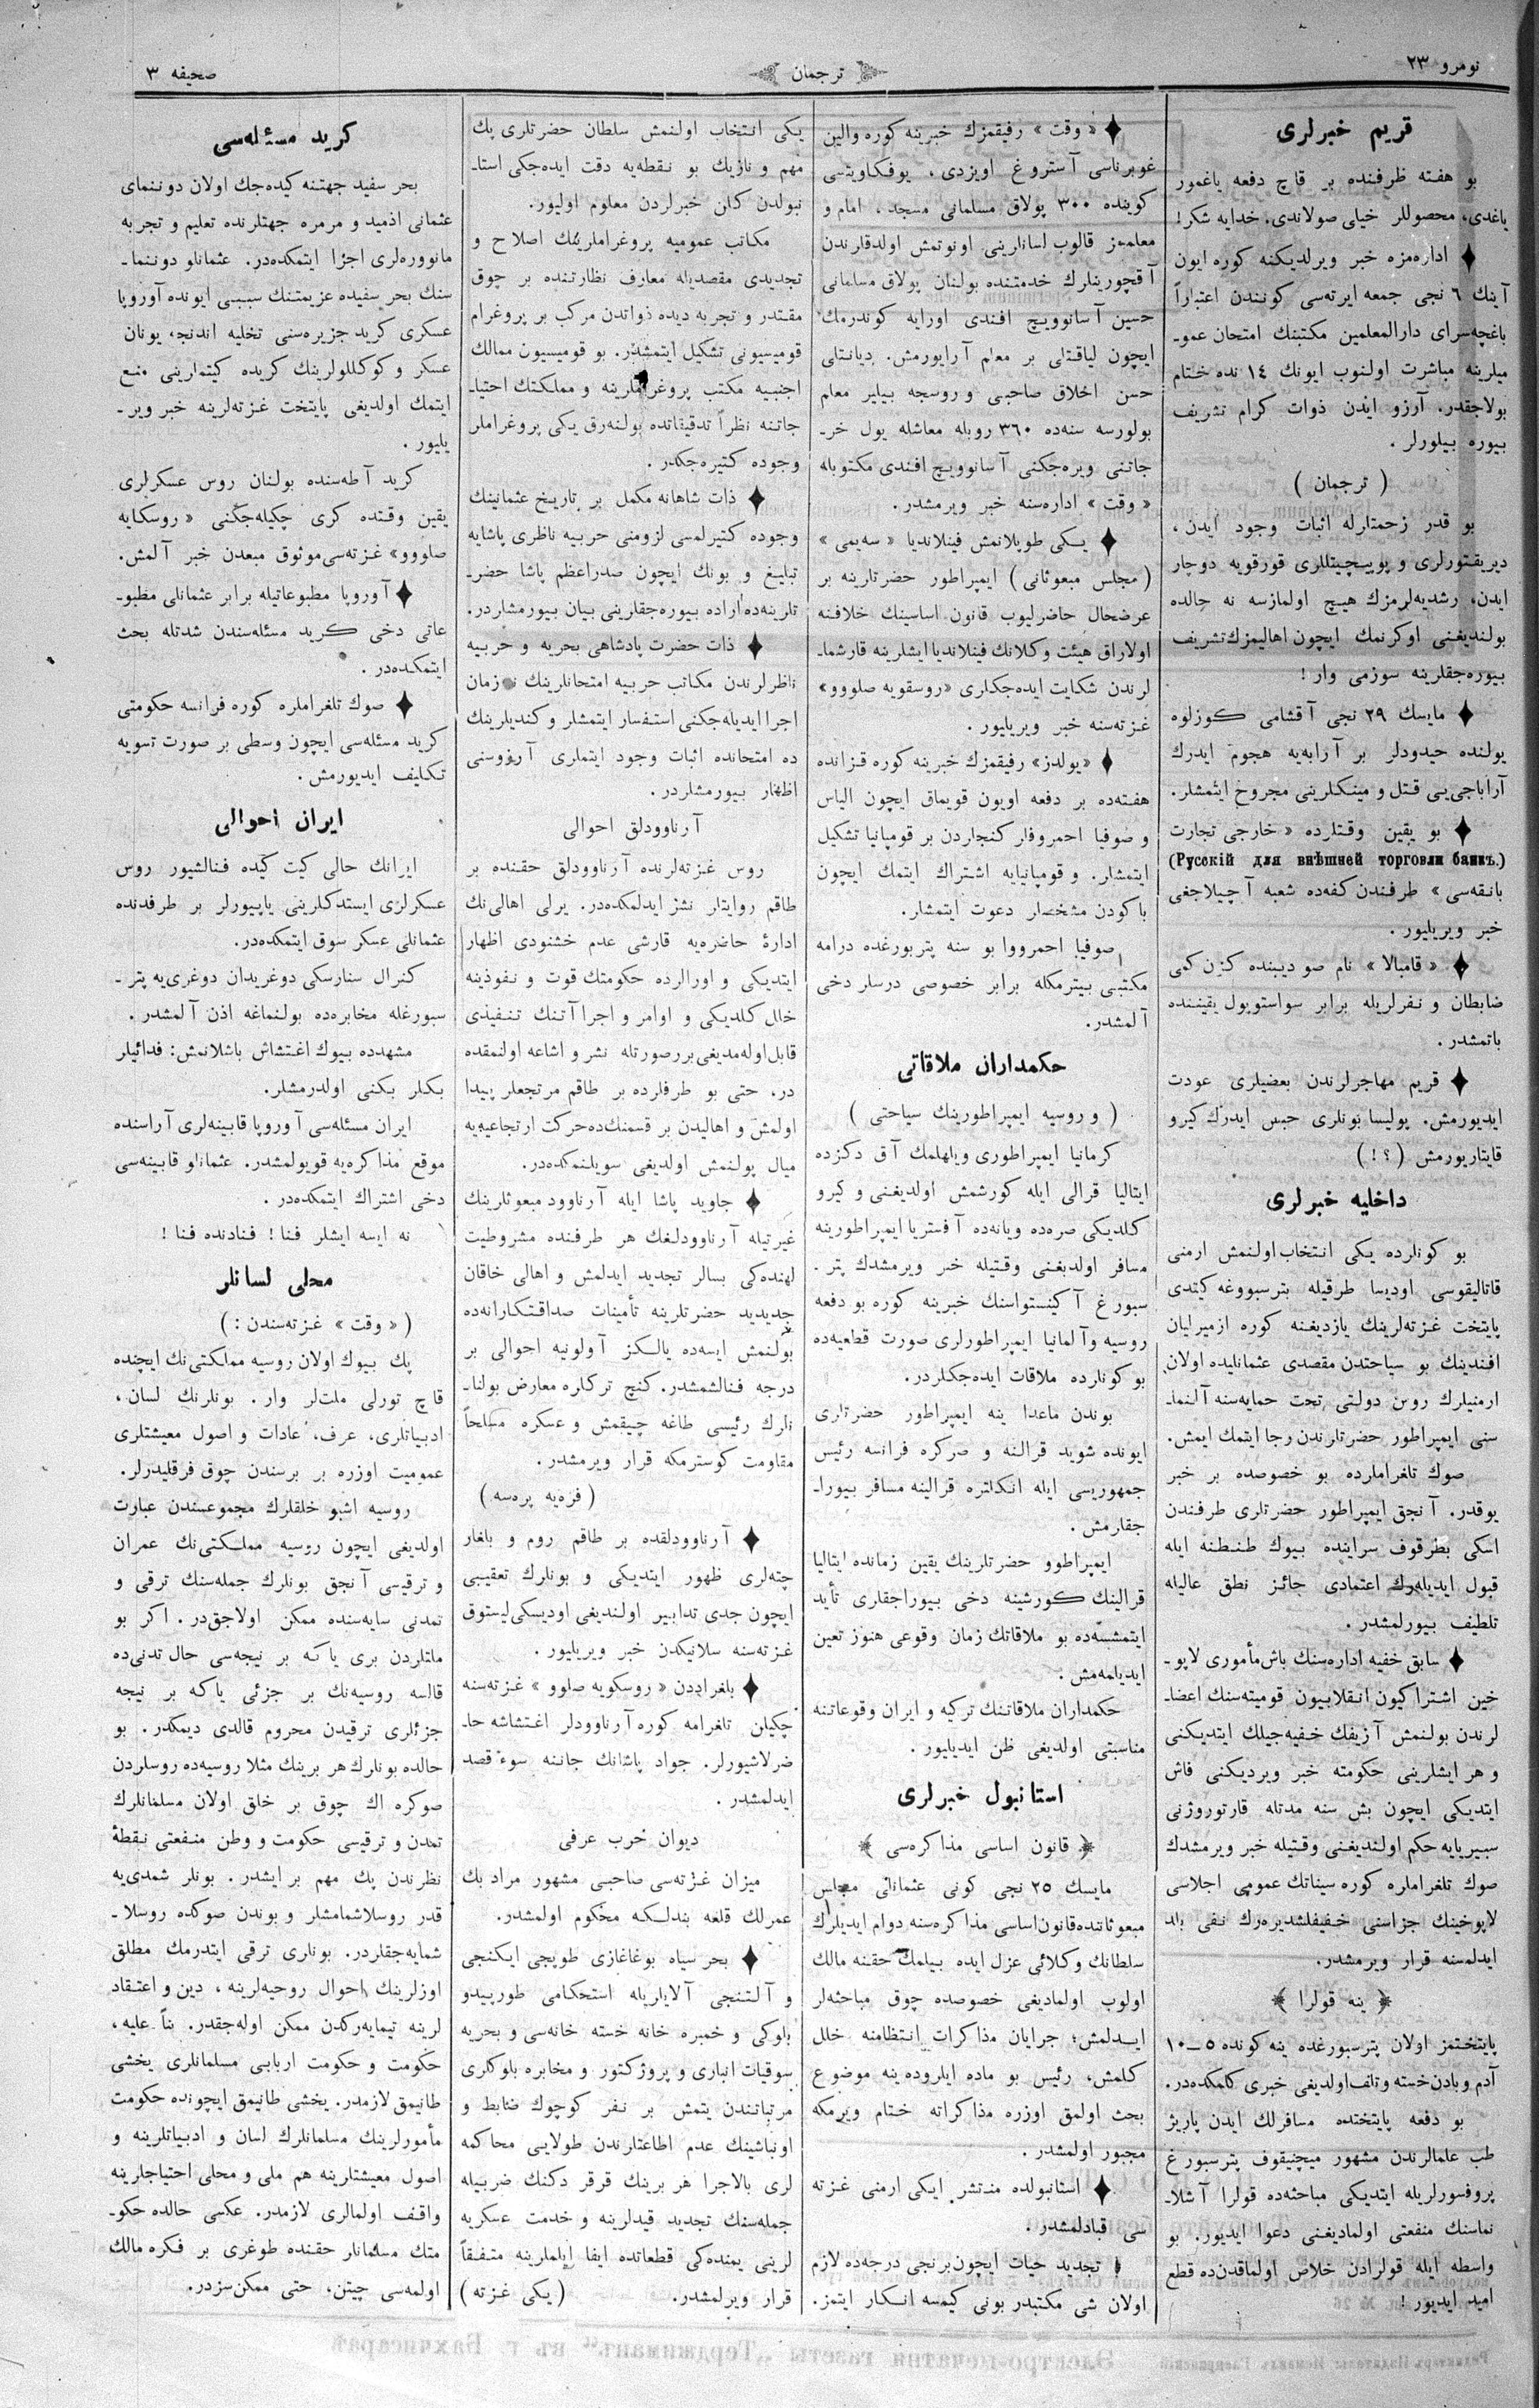 نومرو ٢٣
ترجمان
صحيفه ٣
قريم خبرلرى
بو هفته ظرفنده بر قاچ دفعه ياغمور
ياغدى، محصوللر خيلى صولاندى. خدايه شكر!
اداره‌مزه خبر ويرلديكنه كوره ايون
آينك ٦ نجى جمعه ايرته‌سى كونندن اعتباراً
باغچه‌سراى دارالمعلمين مكتبنك امتحان عمو-
ميلرينه مباشرت اولنوب ايونك ١٤ نده ختام
بولاجقدر. آرزو ايدن ذوات كرام تشريف
بيوره بيلورلر.
( ترجمان )
بو قدر زحمتلرله اثبات وجود ايدن،
ديريقتورلرى و پوپچيتللرى قورقويه دوچار
ايدن، رشديه‌لرمزك هيچ اولمازسه نه حالده
بولنديغنى اوكرنمك ايچون اهاليمزك تشريف
بيوره‌جقلرينه سوزمى وار!
مايسك ٢٩ نجى آقشامى كوزلوه
يولنده حيدودلر بر آرابه‌يه هجوم ايدرك
آراباجى‌يى قتل و مينكلرينى مجروح ايتمشلر.
بو يقين وقتلرده « خارجى تجارت
(Русскій для внѣшней торговли банкъ.)
بانقه‌سى » طرفندن كفه‌ده شعبه آچيلاجغى
خبر ويريليور.
« قامبالا » نام صو ديبنده كزن كمى
ضابطان و نفرلريله برابر سواستوپول يقيننده
باتمشدر.
قريم مهاجرلرندن بعضيلرى عودت
ايديورمش. پوليسا بونلرى حبس ايدرك كيرو
قايتاريورمش (؟!)
داخليه خبرلرى
بو كونلرده يكى انتخاب اولنمش ارمنى
قاتاليقوسى اوديسا طرقيله پترسبووغه كيتدى
پايتخت غزته‌لرينك يازديغنه كوره ازميرليان
افندينك بو سياحتدن مقصدى عثمانليده اولان
ارمنيلرك روس دولتى تحت حمايه‌سنه آلنما-
سنى ايمپراطور حضرتلرندن رجا ايتمك ايمش.
صوك تلغرامارده بو خصوصده بر خبر
يوقدر. آنجق ايمپراطور حضرتلرى طرفندن
اسكى پطرقوف سراينده بيوك طنطنه ايله
قبول ايديله‌رك اعتمادى جائز نطق عاليله
تلطيف بيورلمشدر.
سابق خفيه اداره‌سنك باش مأمورى لاپو-
خين اشتراكيون انقلابيون قوميته‌سنك اعضا-
لرندن بولنمش آزيفك خفيه‌جيلك ايتديكنى
و هر ايشلرينى حكومته خبر ويرديكنى فاش
ايتديكى ايچون بش سنه مدتله قارتوروژنى
سبيريايه حكم اولنديغنى وقتيله خبر ويرمشدك
صوك تلغراملره كوره سيناتك عمومى اجلاسى
لاپوخينك جزاسنى خفيفلشديره‌رك نفى بلد
ايدلمسنه قرار ويرمشدر.
ينه قولرا
پايتختمز اولان پترسبورغده ينه كونده ٥—١٠
آدم وبادن خسته و تلف اولديغى خبرى كلمكده‌در.
بو دفعه پايتختده مسافرلك ايدن پاريژ
طب علمالرندن مشهور ميچنيقوف پترسبورغ
پروفسورلريله ايتديكى مباحثه‌ده قولرا آشلا-
نماسنك منفعتى اولماديغنى دعوا ايديور. بو
واسطه ايله قولرادن خلاص اولماقدن‌ده قطع
اميد ايديور!
« وقت » رفيقمزك خبرينه كوره والين
غوبرناسى آستروغ اويزدى، يوفكاويتسى
كوينده ٣٠٠ پولاق مسلمانى مسجد، امام و
معلمسز قالوب لسانلرينى اونوتمش اولدقلرندن
آقچورينلرك خدمتنده بولنان پولاق مسلمانى
حسين آسانوويچ افندى اورايه كوندرمك
ايچون لياقتلى بر معلم آرايورمش. ديانتلى
حسن اخلاق صاحبى و روسجه بيلير معلم
بولورسه سنه‌ده ٣٦٠ روبله معاشله يول خر-
جاتنى ويره‌جكنى آسانوويچ افندى مكتوبله
« وقت » اداره‌سنه خبر ويرمشدر.
يكى طوپلانمش فينلانديا « سه‌يمى »
(مجلس مبعوثانى) ايمپراطور حضرتلرينه بر
عرضحال حاضرليوب قانون اساسينك خلافنه
اولاراق هيئت وكلانك فينلانديا ايشلرينه قارشما-
لرندن شكايت ايده‌جكلرى «روسقويه صلووو»
غزته‌سنه خبر ويريليور.
«يولدز» رفيقمزك خبرينه كوره قزانده
هفته‌ده بر دفعه اويون قويماق ايچون الياس
و صوفيا احمروفلر كنجلردن بر قومپانيا تشكيل
ايتمشلر. و قومپانيايه اشتراك ايتمك ايچون
باكودن مشخصلر دعوت ايتمشلر.
صوفيا احمرووا بو سنه پتربورغده درامه
مكتبى بيترمكله برابر خصوصى درسلر دخى
آلمشدر.
حكمداران ملاقاتى
( و روسيه ايمپراطورينك سياحتى )
كرمانيا ايمپراطورى ويلهلمك آق دكزده
ايتاليا قرالى ايله كورشمش اولديغنى و كيرو
كلديكى صره‌ده ويانه‌ده آفستريا ايمپراطورينه
مسافر اولديغنى وقتيله خبر ويرمشدك پتر-
سبورغ آكينستواسنك خبرينه كوره بو دفعه
روسيه و آلمانيا ايمپراطورلرى صورت قطعيه‌ده
بو كونلرده ملاقات ايده‌جكلردر.
بوندن ماعدا ينه ايمپراطور حضرتلرى
ايونده شويد قرالنه و صركره فرانسه رئيس
جمهوريسى ايله انكلتره قرالينه مسافر بيورا-
جقارمش.
ايمپراطوو حضرتلرينك يقين زمانده ايتاليا
قرالينك كورشينه دخى بيوراجقلرى تأيد
ايتمشسه‌ده بو ملاقاتك زمان وقوعى هنوز تعين
ايديلمه‌مش.
حكمداران ملاقاتنك تركيه و ايران وقوعاتنه
مناسبتى اولديغى ظن ايديليور.
استانبول خبرلرى
قانون اساسى مذاكره‌سى
مايسك ٢٥ نجى كونى عثمانلى مجلس
مبعوثاننده قانون اساسى مذاكره‌سنه دوام ايديلرك
سلطانك وكلائى عزل ايده بيلمك حقنه مالك
اولوب اولماديغى خصوصده چوق مباحثه‌لر
ايدلمش؛ جرايان مذاكرات انتظامنه خلل
كلمش، رئيس بو ماده ايلروده ينه موضوع
بحث اولمق اوزره مذاكراته ختام ويرمكه
مجبور اولمشدر.
استانبولده منتشر ايكى ارمنى غزته
سى قپادلمشدر.
تجديد حيات ايچون برنجى درجه‌ده لازم
اولان شى مكتبدر بونى كيمسه انكار ايتمز.
يكى انتخاب اولنمش سلطان حضرتلرى پك
مهم و نازيك بو نقطه‌يه دقت ايده‌جكى استا-
نبولدن كلن خبرلردن معلوم اوليور.
مكاتب عموميه پروغراملرينك اصلاح و
تجديدى مقصديله معارف نظارتنده بر چوق
مقتدر و تجربه ديده ذواتدن مركب بر پروغرام
قوميسيونى تشكيل ايتمشدر. بو قوميسيون ممالك
اجنبيه مكتب پروغراملرينه و مملكتك احتيا-
جاتنه نظراً تدقيقاتده بولنه‌رق يكى پروغراملر
وجوده كتيره‌جكدر.
ذات شاهانه مكمل بر تاريخ عثمانينك
وجوده كتيرلمسى لزومنى حربيه ناظرى پاشايه
تبليغ و بونك ايچون صدراعظم پاشا حضر-
تلرينه‌ده اراده بيوره‌جقلرينى بيان بيورمشلردر.
ذات حضرت پادشاهى بحريه و حربيه
ناظرلرندن مكاتب حربيه امتحانلرينك نه زمان
اجرا ايديله‌جكنى استفسار ايتمشلر و كنديلرينك
ده امتحانده اثبات وجود ايتملرى آرزوسنى
اظهار بيورمشلردر.
آرناوودلق احوالى
روس غزته‌لرنده آرناوودلق حقنده بر
طاقم روايتلر نشر ايدلمكده‌در. يرلى اهالى‌نك
ادارهٔ حاضره‌يه قارشى عدم خشنودى اظهار
ايتديكى و اورالرده حكومتك قوت و نفوذينه
خلل كلديكى و اوامر و اجراآتنك تنفيذى
قابل اوله‌مديغى بر صورتله نشر و اشاعه اولنمقده
در، حتى بو طرفلرده بر طاقم مرتجعلر پيدا
اولمش و اهاليدن بر قسمنك‌ده حركت ارتجاعيه‌يه
ميال بولنمش اولديغى سويلنمكده‌در.
جاويد پاشا ايله آرناوود مبعوثلرينك
غيرتيله آرناوودلغك هر طرفنده مشروطيت
لهنده‌كى بسالر تجديد ايدلمش و اهالى خاقان
جديديد حضرتلرينه تأمينات صداقتكارانه‌ده
بولنمش ايسه‌ده يالكز آولونيه احوالى بر
درجه فنالشمشدر. كنج تركلره معارض بولنا-
نلرك رئيسى طاغه چيقمش و عسكره مسلحاً
مقاومت كوسترمكه قرار ويرمشدر.
(فره‌يه پره‌سه)
آرناوودلقده بر طاقم روم و بلغار
چته‌لرى ظهور ايتديكى و بونلرك تعقيبى
ايچون جدى تدابير اولنديغى اوديسكى ليستوق
غزته‌سنه سلانيكدن خبر ويريليور.
بلغراددن « روسكويه صلوو » غزته‌سنه
چكيلن تلغرامه كوره آرناوودلر اغتشاشه حا-
ضرلاشيورلر. جواد پاشانك جاننه سوء قصد
ايدلمشدر.
ديوان حرب عرفى
ميزان غزته‌سى صاحبى مشهور مراد بك
عمرلك قلعه بندلكه محكوم اولمشدر.
بحر سياه بوغاغازى طوپجى ايكنجى
و آلتنجى آلايلريله استحكامى طورپيدو
بلوكى و خمبره خانه خسته خانه‌سى و بحريه
سوقيات انبارى و پروژكتور و مخابره بلوكلرى
مرتباتندن يتمش بر نفر كوچوك ضابط و
اونباشينك عدم اطاعتلرندن طولايى محاكمه
لرى بالاجرا هر برينك قرقر دكنك ضربيله
جمله‌سنك تجديد قيدلرينه و خدمت عسكريه
لرينى يمنده‌كى قطعاتده ايفا ايلملرينه متفقاً
قرار ويرلمشدر. (يكى غزته)
كريد مسئله‌سى
بحر سفيد جهتنه كيده‌جك اولان دوننماى
عثمانى ازميد و مرمره جهتلرنده تعليم و تجربه
مانووره‌لرى اجرا ايتمكده‌در. عثمانلو دوننما-
سنك بحر سفيده عزيمتنك سببى ايونده آوروپا
عسكرى كريد جزيره‌سنى تخليه اندنجه، يونان
عسكر و كوكللولرينك كريده كيتملرينى منع
ايتمك اولديغى پايتخت غزته‌لرينه خبر وير-
يليور.
كريد آطه‌سنده بولنان روس عسكرلرى
يقين وقتده كرى چكيله‌جكنى « روسكايه
صلووو» غزته‌سى موثوق منبعدن خبر آلمش.
آوروپا مطبوعاتيله برابر عثمانلى مطبو-
عاتى دخى كريد مسئله‌سندن شدتله بحث
ايتمكده‌در.
صوك تلغراملره كوره فرانسه حكومتى
كريد مسئله‌سى ايچون وسطى بر صورت تسويه
تكليف ايديورمش.
ايران احوالى
ايرانك حالى كيت كيده فنالشيور روس
عسكرلرى ايستدكلرينى ياپيورلر بر طرفدنده
عثمانلى عسكر سوق ايتمكده‌در.
كنرال سنارسكى دوغريدان دوغرى‌يه پتر-
سبورغله مخابره‌ده بولنماغه اذن آلمشدر.
مشهدده بيوك اغتشاش باشلانمش: فدائيلر
بكلر بكنى اولدرمشلر.
ايران مسئله‌سى آوروپا قابينه‌لرى آراسنده
موقع مذاكره‌يه قويولمشدر. عثمانلو قابينه‌سى
دخى اشتراك ايتمكده‌در.
نه ايسه ايشلر فنا! فنادنده فنا!
محلى لسانلر
(« وقت » غزته‌سندن:)
پك بيوك اولان روسيه مملكتى‌نك ايچنده
قاچ تورلى ملت‌لر وار. بونلرنك لسان،
ادبياتلرى، عرف، عادات و اصول معيشتلرى
عموميت اوزره بر برسندن چوق فرقليدرلر.
روسيه اشبو خلقلرك مجموعسندن عبارت
اولديغى ايچون روسيه مملكتى‌نك عمران
و ترقيسى آنجق بونلرك جمله‌سنك ترقى و
تمدنى سايه‌سنده ممكن اولاجق‌در. اكر بو
ملتلردن برى ياكه بر نيجه‌سى حال تدنى‌ده
قالسه روسيه‌نك بر جزئى ياكه بر نيجه
جزئلرى ترقيدن محروم قالدى ديمكدر. بو
حالده بونلرك هر برينك مثلا روسيه‌ده روسلردن
صوكره اك چوق بر خلق اولان مسلمانلرك
تمدن و ترقيسى حكومت و وطن منفعتى نقطهٔ
نظرندن پك مهم بر ايشدر. بونلر شمدى‌يه
قدر روسلاشمامشلر و بوندن صوكده روسلا-
شمايه‌جقلردر. بونلرى ترقى ايتدرمك مطلق
اوزلرينك احوال روحيه‌لرينه، دين و اعتقاد
لرينه تيمايه‌ركدن ممكن اوله‌جقدر. بناً عليه،
حكومت و حكومت اربابى مسلمانلرى يخشى
طانيمق لازمدر. يخشى طانيمق ايچونده حكومت
مأمورلرينك مسلمانلرك لسان و ادبياتلرينه و
اصول معيشتلرينه هم ملى و محلى احتياجلرينه
واقف اولمالرى لازمدر. عكسى حالده حكو-
متك مسلمانلر حقنده طوغرى بر فكره مالك
اولمه‌سى چيتن، حتى ممكن‌سزدر.